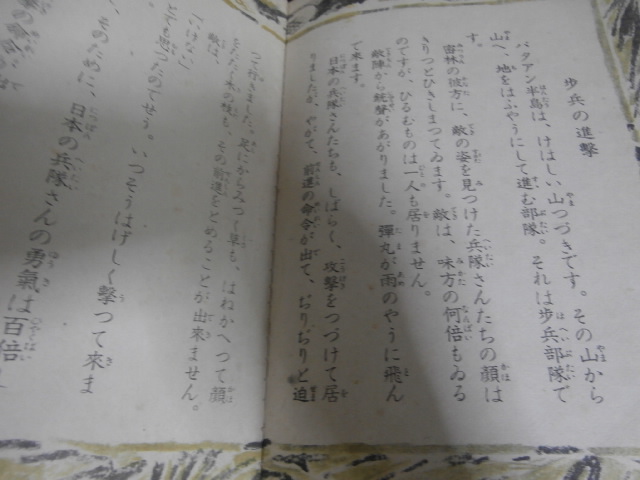 歩兵の進撃
バタアン半島は、けはしい山つづきです。その山から
山へ、地をはふやうにして進む部隊。それは歩兵部隊で
す。
密林の彼方に、敵の姿を見つけた兵隊さんたちの顔は
きりつとひきしまつてゐます。敵は、味方の何倍もゐる
のですが、ひるむものは一人も居りません。
敵陣から銃聲があがりました。彈丸が雨のやうに飛ん
で來ます。
日本の兵隊さんたちも、しばらく、攻撃をつづけて居
りましたが、やがて、前進の命令が出て、ぢりぢりと迫
つて行きました。足にからみつく草も、はねかへつて顔
木の枝も、その前進をとめることが出來ません。
敵は、
「いけない」
とでも思つたのでせう。いつそうはげしく撃つて來ま
そのために、日本の兵隊さんの勇氣は百倍し